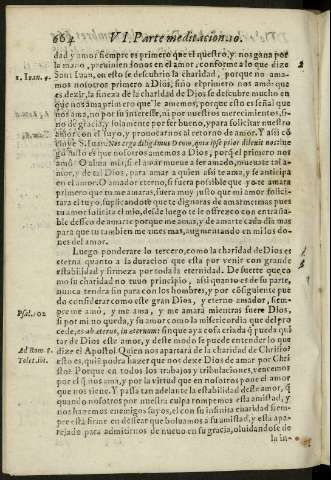 664 VI. Parte meditacion. 10.
dad y amor siempre es primero que el nuestro, y nos gana por
la mano, previniendonos en el amor, conforme a lo que dize
San Iuan, en esto se descubrio la charidad, porque no ama-
1. Ioan. 4.
mos nosotros primero a Dios, sino el primero nos amò: que
es dezir, la fineza de la charidad de Dios se descubre mucho en
que nos ama primero que le amemos; porque esto es señal que
nos ama, no por su interesse, ni por nuestros merecimientos, si-
no de gracia, y solamente por ser bueno, y para solicitar nuestro
amor con el suyo, y provocarnos al retorno de amor. Y assi co
cluye S. Iuan. Nos ergo diligamus Deum, quia ipse prior dilexit nos: luego
justo es que nosotros amemos a Dios, porq̃ el primero nos
amò. O alma mia, si el amar mueve a ser amado, muevate tal a-
mor, y de tal Dios, para amar a quien assi te ama, y se anticipa
en el amor. O amador eterno, si fuera possible que yo te amara
primero que tu me amaras, fuera muy justo que mi amor solici-
tara el tuyo, suplicandote que te dignaras de amarme: mas pues
tu amor solicita el mio, desde luego te le ofrezco con entraña-
ble desseo de amarte porque me amas, y de amarte cada dia mas
para que tu tambien me ames mas, aumentando en mi los do-
nes del amor.
Luego ponderarè lo tercero, como la charidad de Dios es
eterna quanto a la duracion que esta por venir con grande
estabilidad y firmeza por toda la eternidad. De suerte que co
mo su charidad no tuvo principio, assi quanto es de su parte,
nunca tendrà fin para con los hombres, y por cõsiguiente pue
do considerar como este gran Dios, y eterno amador, siem-
pre me amò, y me ama, y me amarà mientras fuere Dios,
Psal. 102
si por mi no queda, y su amor como la misericordia que del pro
cede, es ab æterno, in eternum: sin que aya cosa criada q̃ pueda qui
tar de Dios este amor, y deste modo se puede entender lo que
Ad Rom. 8.
dize el Apostol Quien nos apartarà de la charidad de Christo?
Tolet. ibi.
esto es, quiẽ podra hazer que nos dexe Dios de amar por Chri
sto? Porque en todos los trabajos y tribulaciones, vencemos
por el q̃ nos ama, y por la virtud que en nosotros pone el amor
que nos tiene. Y passa tan adelante la estabilidad deste amor, q̃
quando nosotros por nuestra culpa rompemos esta amistad, y
nos hazemos enemigos suyos, el con su infinita charidad siem-
pre està firme en dessear que bolvamos a su amistad, y està apa-
rejado para admitirnos de nuevo en su gracia, olvidandose de
la in-